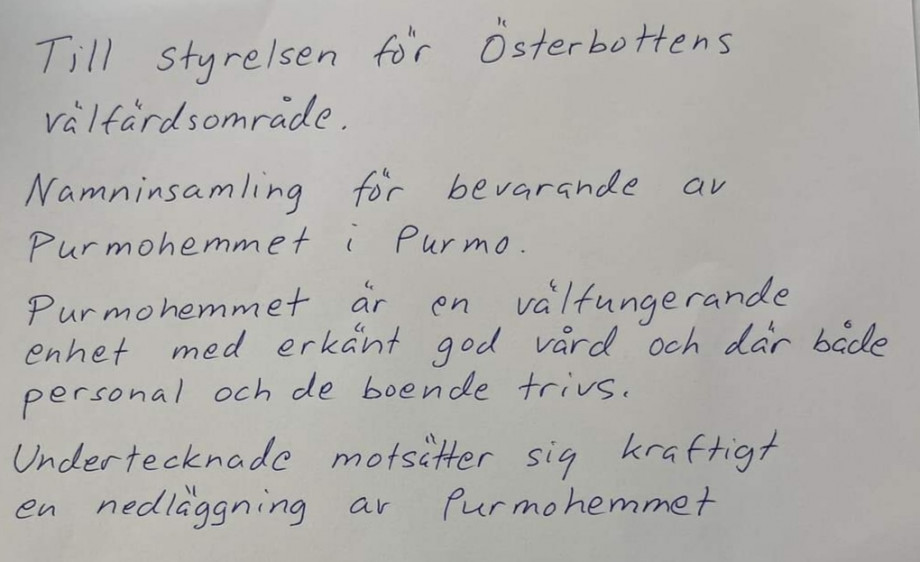 Till styrelsen för Österbottens
välfärdsområde.
Namninsamling för bevarande av
Purmohemmet i Purmo.
Purmohemmet är en välfungerande
enhet med erkänt god vård och där både
personal och de boende trivs.
Undertecknade motsätter sig kraftigt
en nedläggning av Purmohemmet